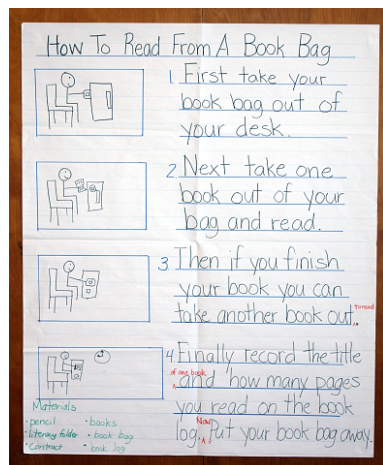 How To Read From A Book Bag
1. First take your
book bag out of
your desk.
2. Next take one
book out of your
bag and read.
3 Then if you finish
your book you can
take another book out to read.
4 Finally record the title
of one book
and how many pages
you read on the book
log. Now Put your book bag away.
Materials
· pencil
· Literacy folder
· Contract
· books
· book bag
· book log